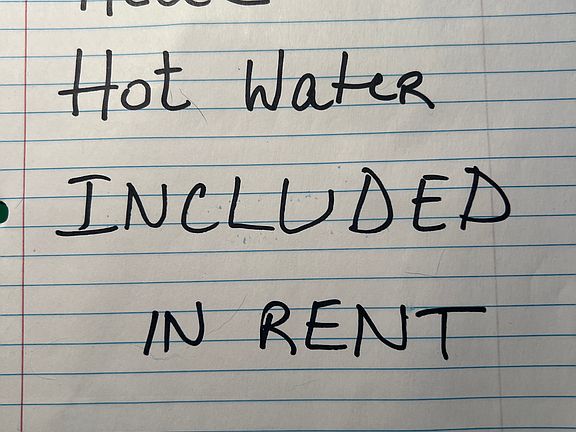 Hot Water
INCLUDED
IN RENT